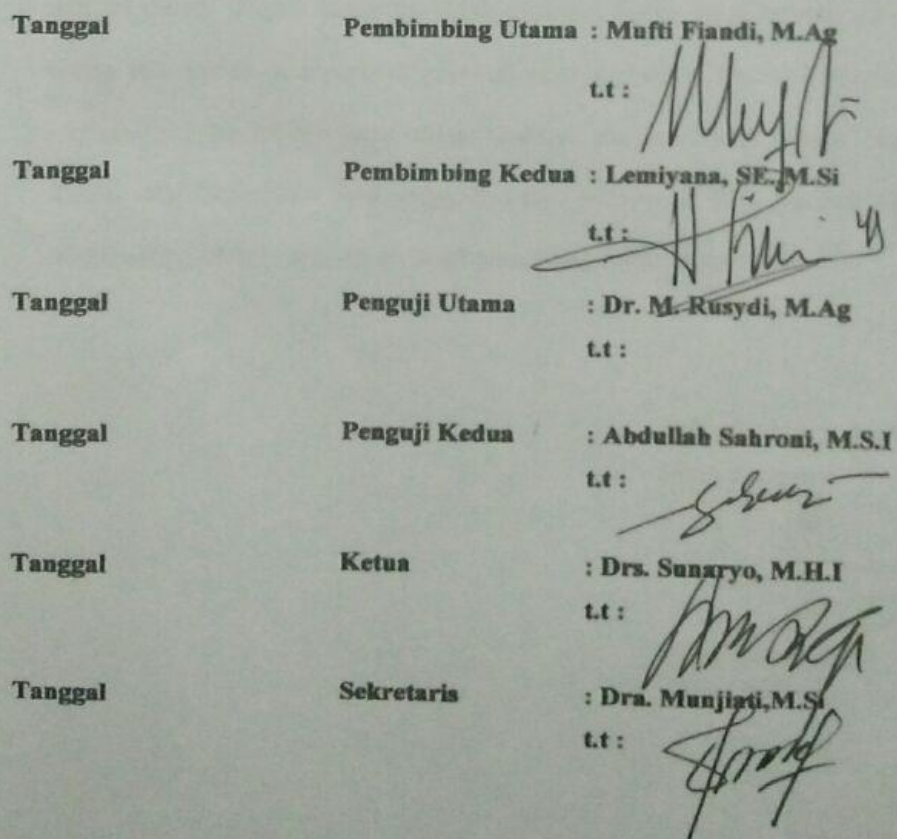 Tanggal Pembimbing Utama : Mufti Fiandi, M.Ag
t.t :
Tanggal Pembimbing Kedua : Lemiyana, SE., M.Si
t.t :
Tanggal Penguji Utama : Dr. M. Rusydi, M.Ag
t.t :
Tanggal Penguji Kedua : Abdullah Sahroni, M.S.I
t.t :
Tanggal Ketua : Drs. Sunaryo, M.H.I
t.t :
Tanggal Sekretaris : Dra. Munjiati,M.Si
t.t :